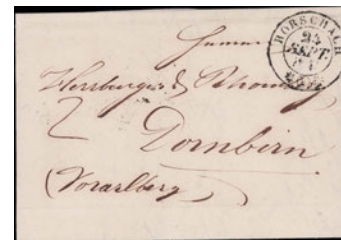 RORSCHACH
24
SEPT.
Herrburger & Rhomberg
2
Dornbirn
(Vorarlberg)